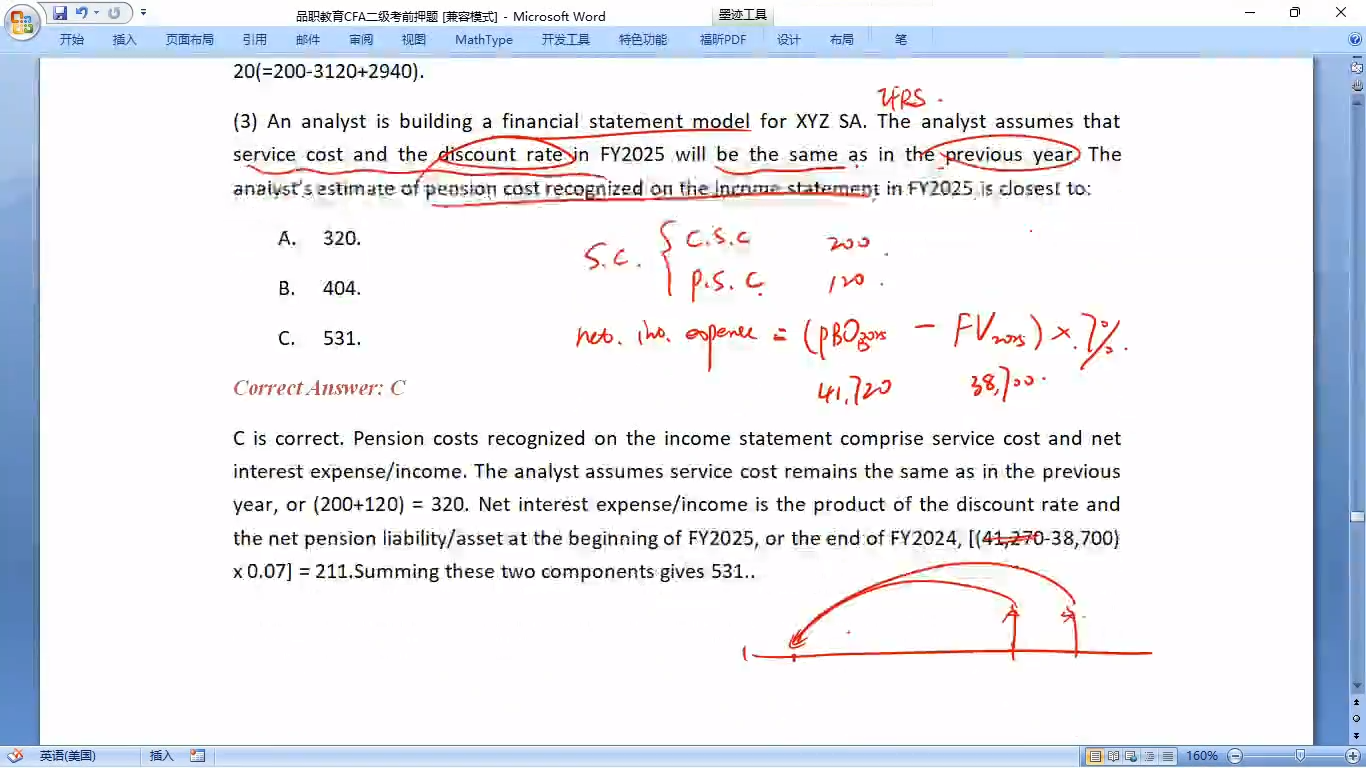 品职教育CFA二级考前押题 [兼容模式] - Microsoft Word
墨迹工具
开始 插入 页面布局 引用 邮件 审阅 视图 MathType 开发工具 特色功能 福昕PDF 设计 布局 笔
20(=200-3120+2940).
IFRS.
(3) An analyst is building a financial statement model for XYZ SA. The analyst assumes that
service cost and the discount rate in FY2025 will be the same as in the previous year. The
analyst's estimate of pension cost recognized on the income statement in FY2025 is closest to:
A. 320.
B. 404.
C. 531.
S.C. { C.S.C 200.
P.S.C. 120.
net. int. expense = (PBO2025 - FV2025) × 7%.
41,720 38,700.
Correct Answer: C
C is correct. Pension costs recognized on the income statement comprise service cost and net
interest expense/income. The analyst assumes service cost remains the same as in the previous
year, or (200+120) = 320. Net interest expense/income is the product of the discount rate and
the net pension liability/asset at the beginning of FY2025, or the end of FY2024, [(41,270-38,700)
x 0.07] = 211.Summing these two components gives 531..
英语(美国) 插入 160%